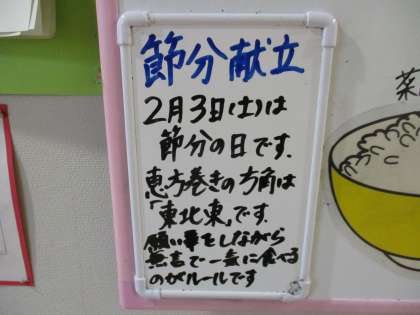 節分献立
2月3日(土)は
節分の日です.
恵方巻きの方角は
「東北東」です.
願い事をしながら
無言で一気に食べる
のがルールです
菜